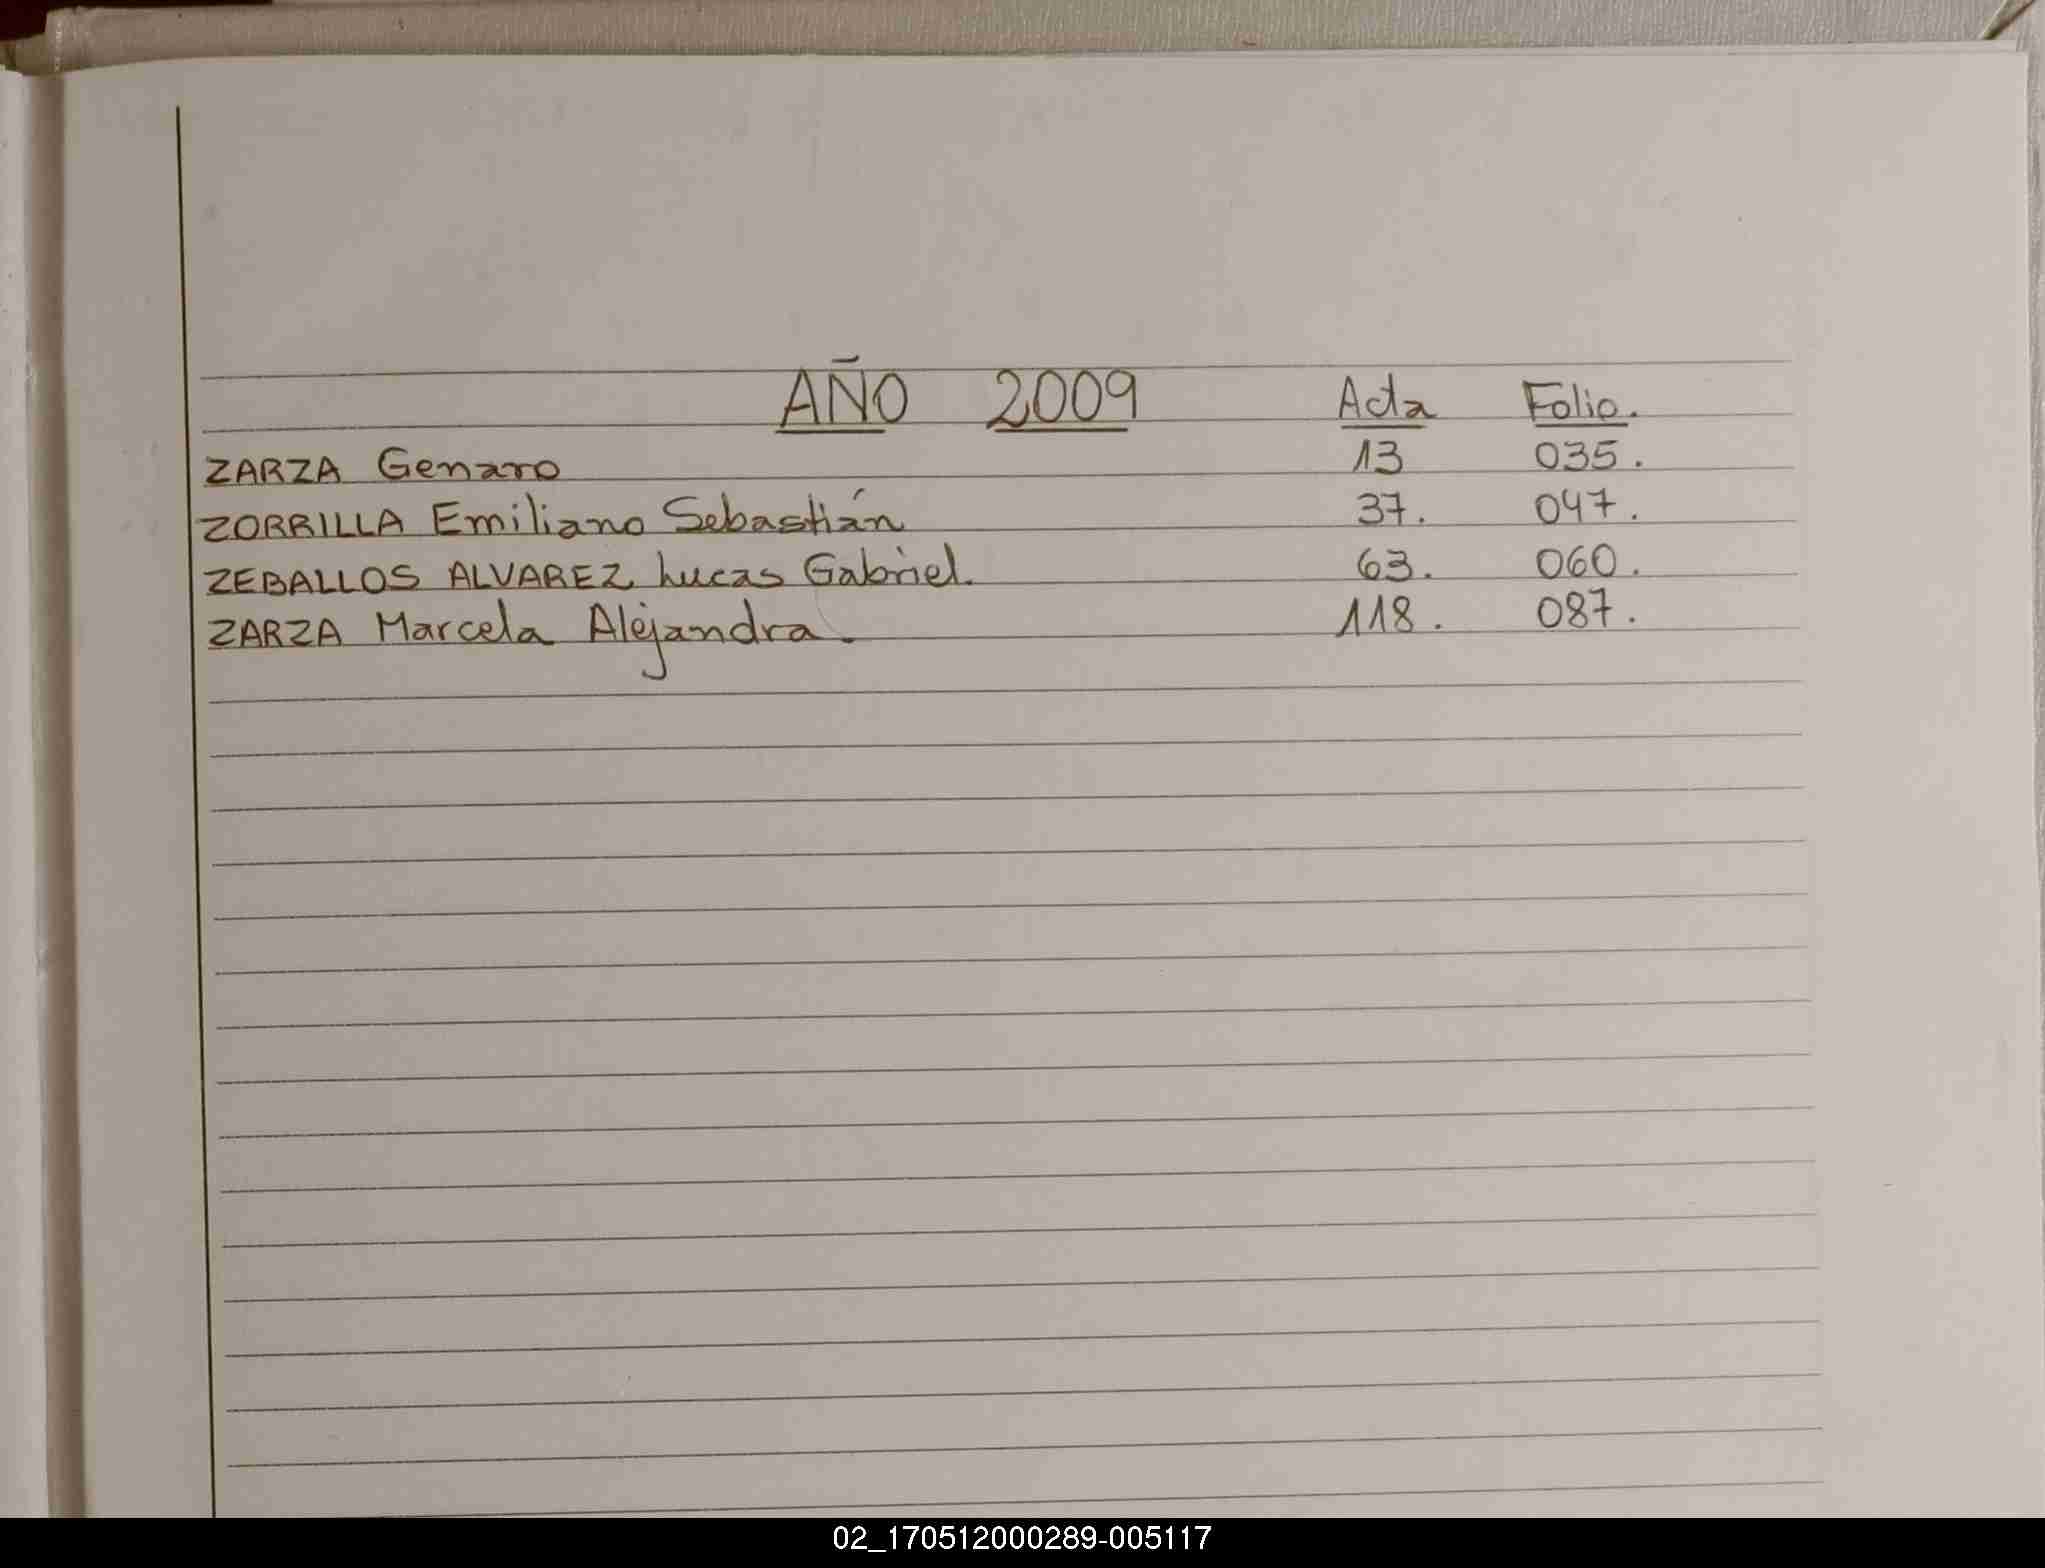 AÑO 2009 Acta Folio.
ZARZA Genaro 13 035.
ZORRILLA Emiliano Sebastián 37. 047.
ZEBALLOS ALVAREZ Lucas Gabriel. 63. 060.
ZARZA Marcela Alejandra. 118. 087.
02_170512000289-005117